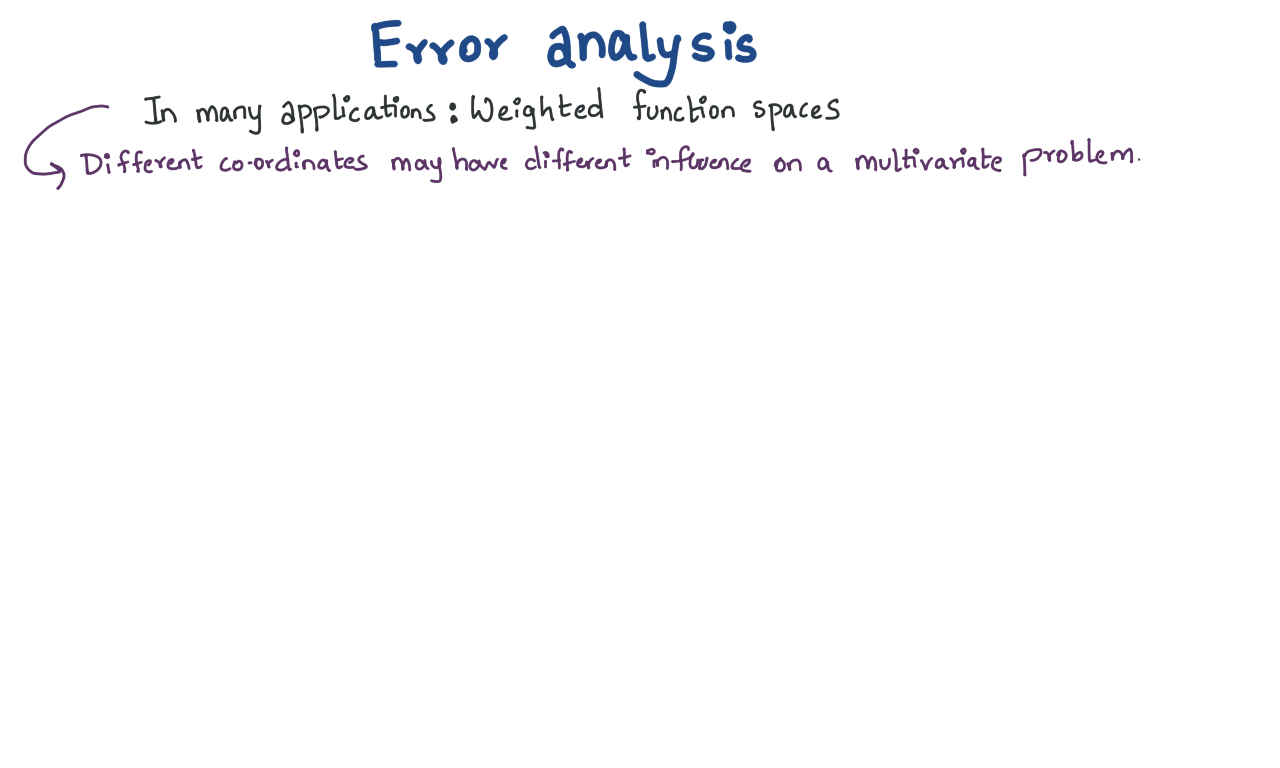 Error analysis
In many applications: Weighted function spaces
Different co-ordinates may have different influence on a multivariate problem.